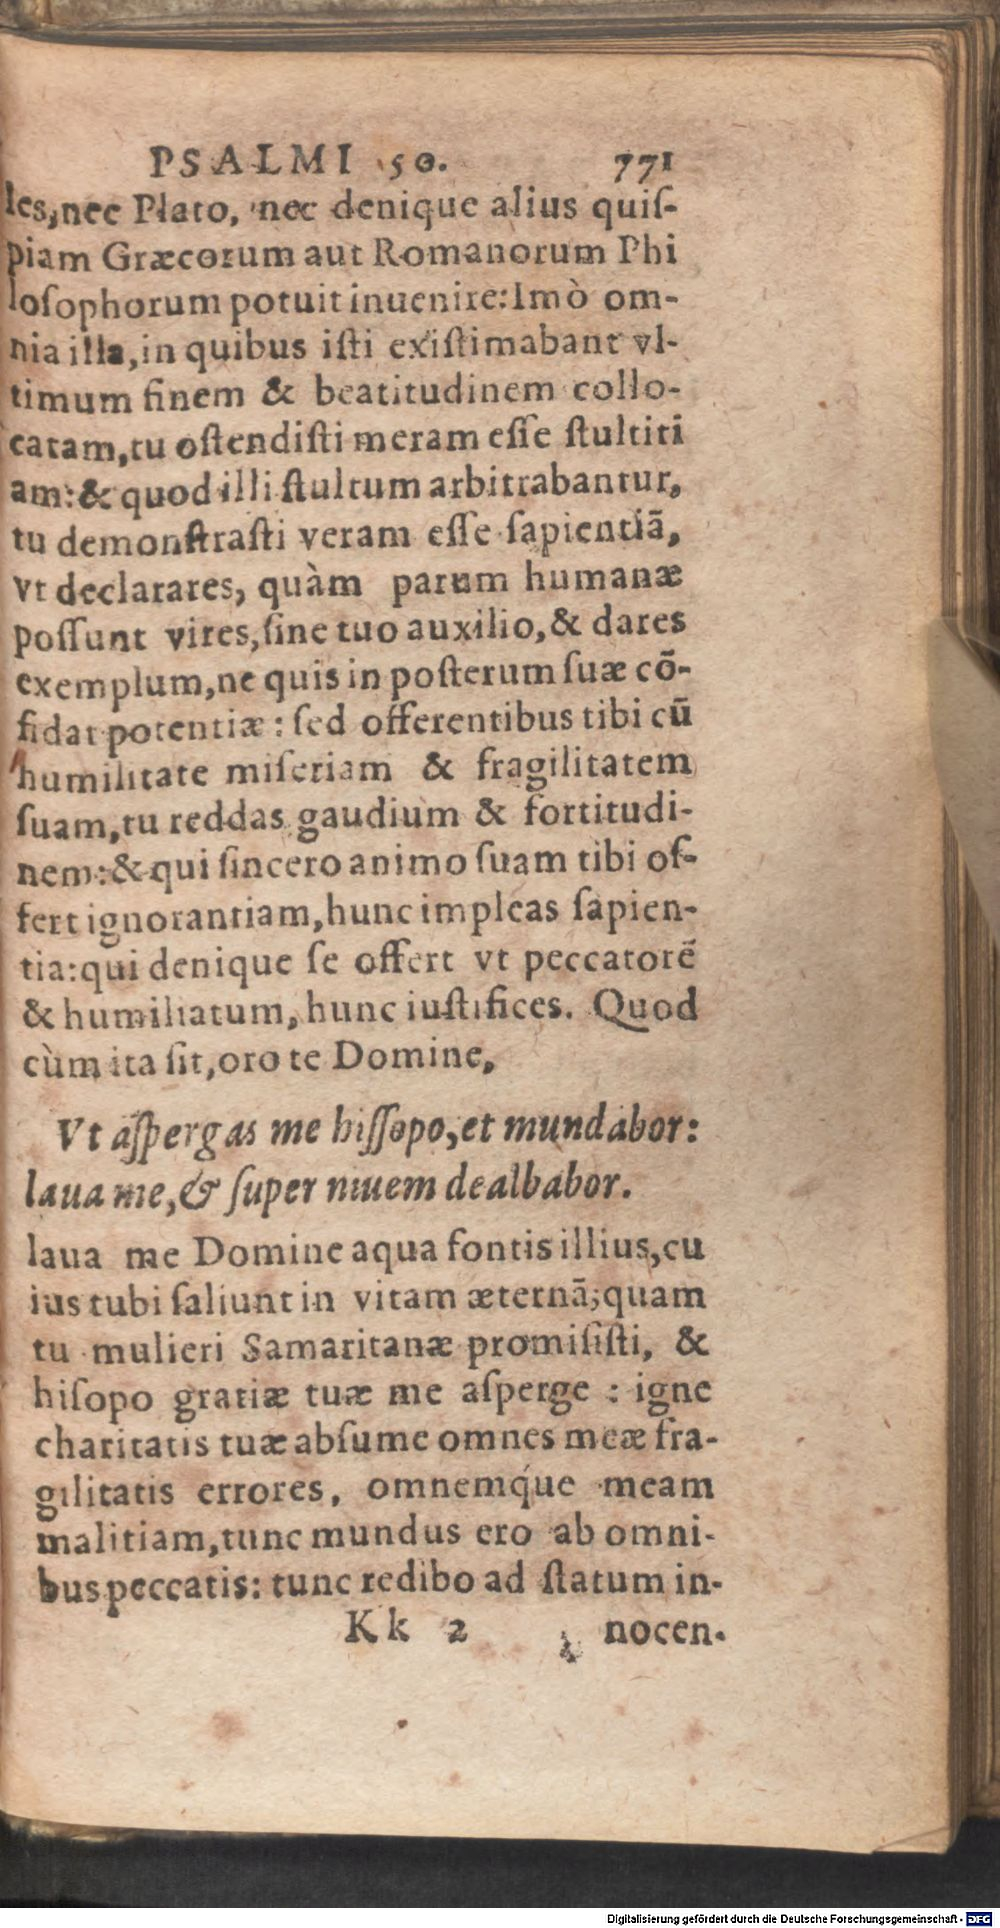 PSALMI 50. 771
les, nec Plato, nec denique alius quiſ-
piam Græcorum aut Romanorum Phi
loſophorum potuit inuenire: Imò om-
nia illa, in quibus iſti exiſtimabant vl-
timum finem & beatitudinem collo-
catam, tu oſtendiſti meram eſſe ſtultiti
am: & quod illi ſtultum arbitrabantur,
tu demonſtraſti veram eſſe ſapientiā,
vt declarares, quàm parum humanæ
poſſunt vires, ſine tuo auxilio, & dares
exemplum, ne quis in poſterum ſuæ cō-
fidat potentiæ: ſed offerentibus tibi cū
humilitate miſeriam & fragilitatem
ſuam, tu reddas gaudium & fortitudi-
nem: & qui ſincero animo ſuam tibi of-
fert ignorantiam, hunc impleas ſapien-
tia: qui denique ſe offert vt peccatorē
& humiliatum, hunc iuſtifices. Quod
cùm ita ſit, oro te Domine,
Vt aſpergas me hiſſopo, et mundabor:
laua me, & ſuper niuem dealbabor.
laua me Domine aqua fontis illius, cu
ius tubi ſaliunt in vitam æternā; quam
tu mulieri Samaritanæ promiſiſti, &
hiſopo gratiæ tuæ me aſperge : igne
charitatis tuæ abſume omnes meæ fra-
gilitatis errores, omnemq́ue meam
malitiam, tunc mundus ero ab omni-
bus peccatis: tunc redibo ad ſtatum in-
Kk 2 nocen-
Digitalisierung gefördert durch die Deutsche Forschungsgemeinschaft - DFG